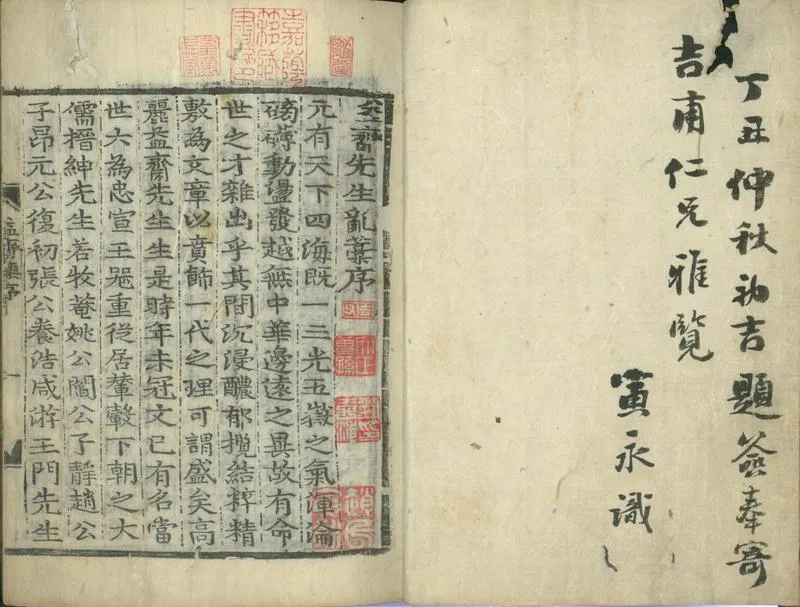 丁丑仲秋初吉題簽奉寄
吉甫仁兄雅覽
永識
嘉蔭
簃藏
書印
益齋先生亂藁序
元有天下四海既一三光五嶽之氣渾淪
磅礴動盪發越無中華邊遠之異故有命
世之才雜出乎其間沉浸醲郁攬結粹精
敷為文章以賁飾一代之理可謂盛矣高
麗益齋先生生是時年未冠文已有名當
世大為忠宣王器重從居輦轂下朝之大
儒搢紳先生若牧菴姚公閻公子靜趙公
子昂元公復初張公養浩咸游王門先生
益齋集序
一